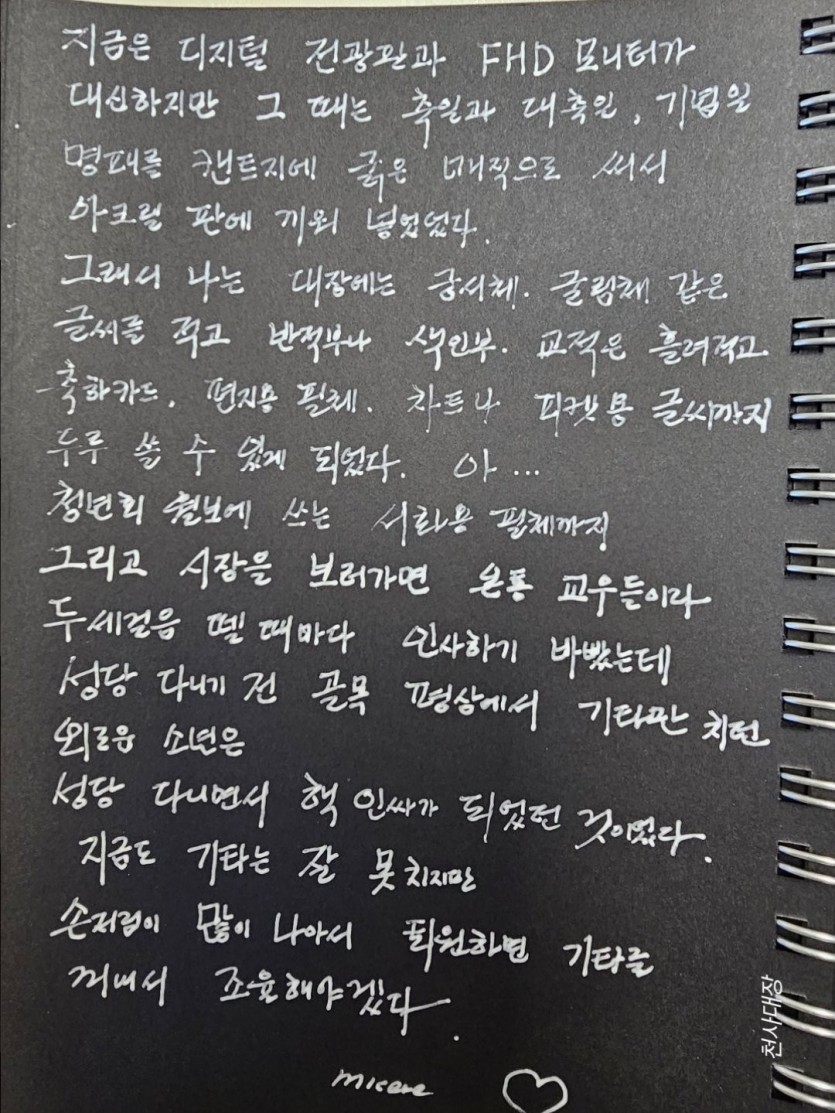 지금은 디지털 전광판과 FHD 모니터가
대신하지만 그 때는 축일과 대축일, 기념일
명패를 캔트지에 굵은 매직으로 써서
아크릴 판에 끼워 넣었었다.
그래서 나는 대장에는 궁서체. 굴림체 같은
글씨를 적고 반적부나 색인부. 교적은 흘려적고.
축하카드. 편지용 필체. 차트나 피켓용 글씨까지
두루 쓸 수 있게 되었다. 아...
청년회 월보에 쓰는 서화용 필체까지
그리고 시장을 보러가면 온통 교우들이라
두세걸음 뗄 때마다 인사하기 바빴는데
성당 다니기 전 골목 평상에서 기타만 치던
외로운 소년은
성당 다니면서 핵 인싸가 되었던 것이었다.
지금도 기타는 잘 못치지만
손저림이 많이 나아서 퇴원하면 기타를
꺼내서 조율해야겠다.
천사대장